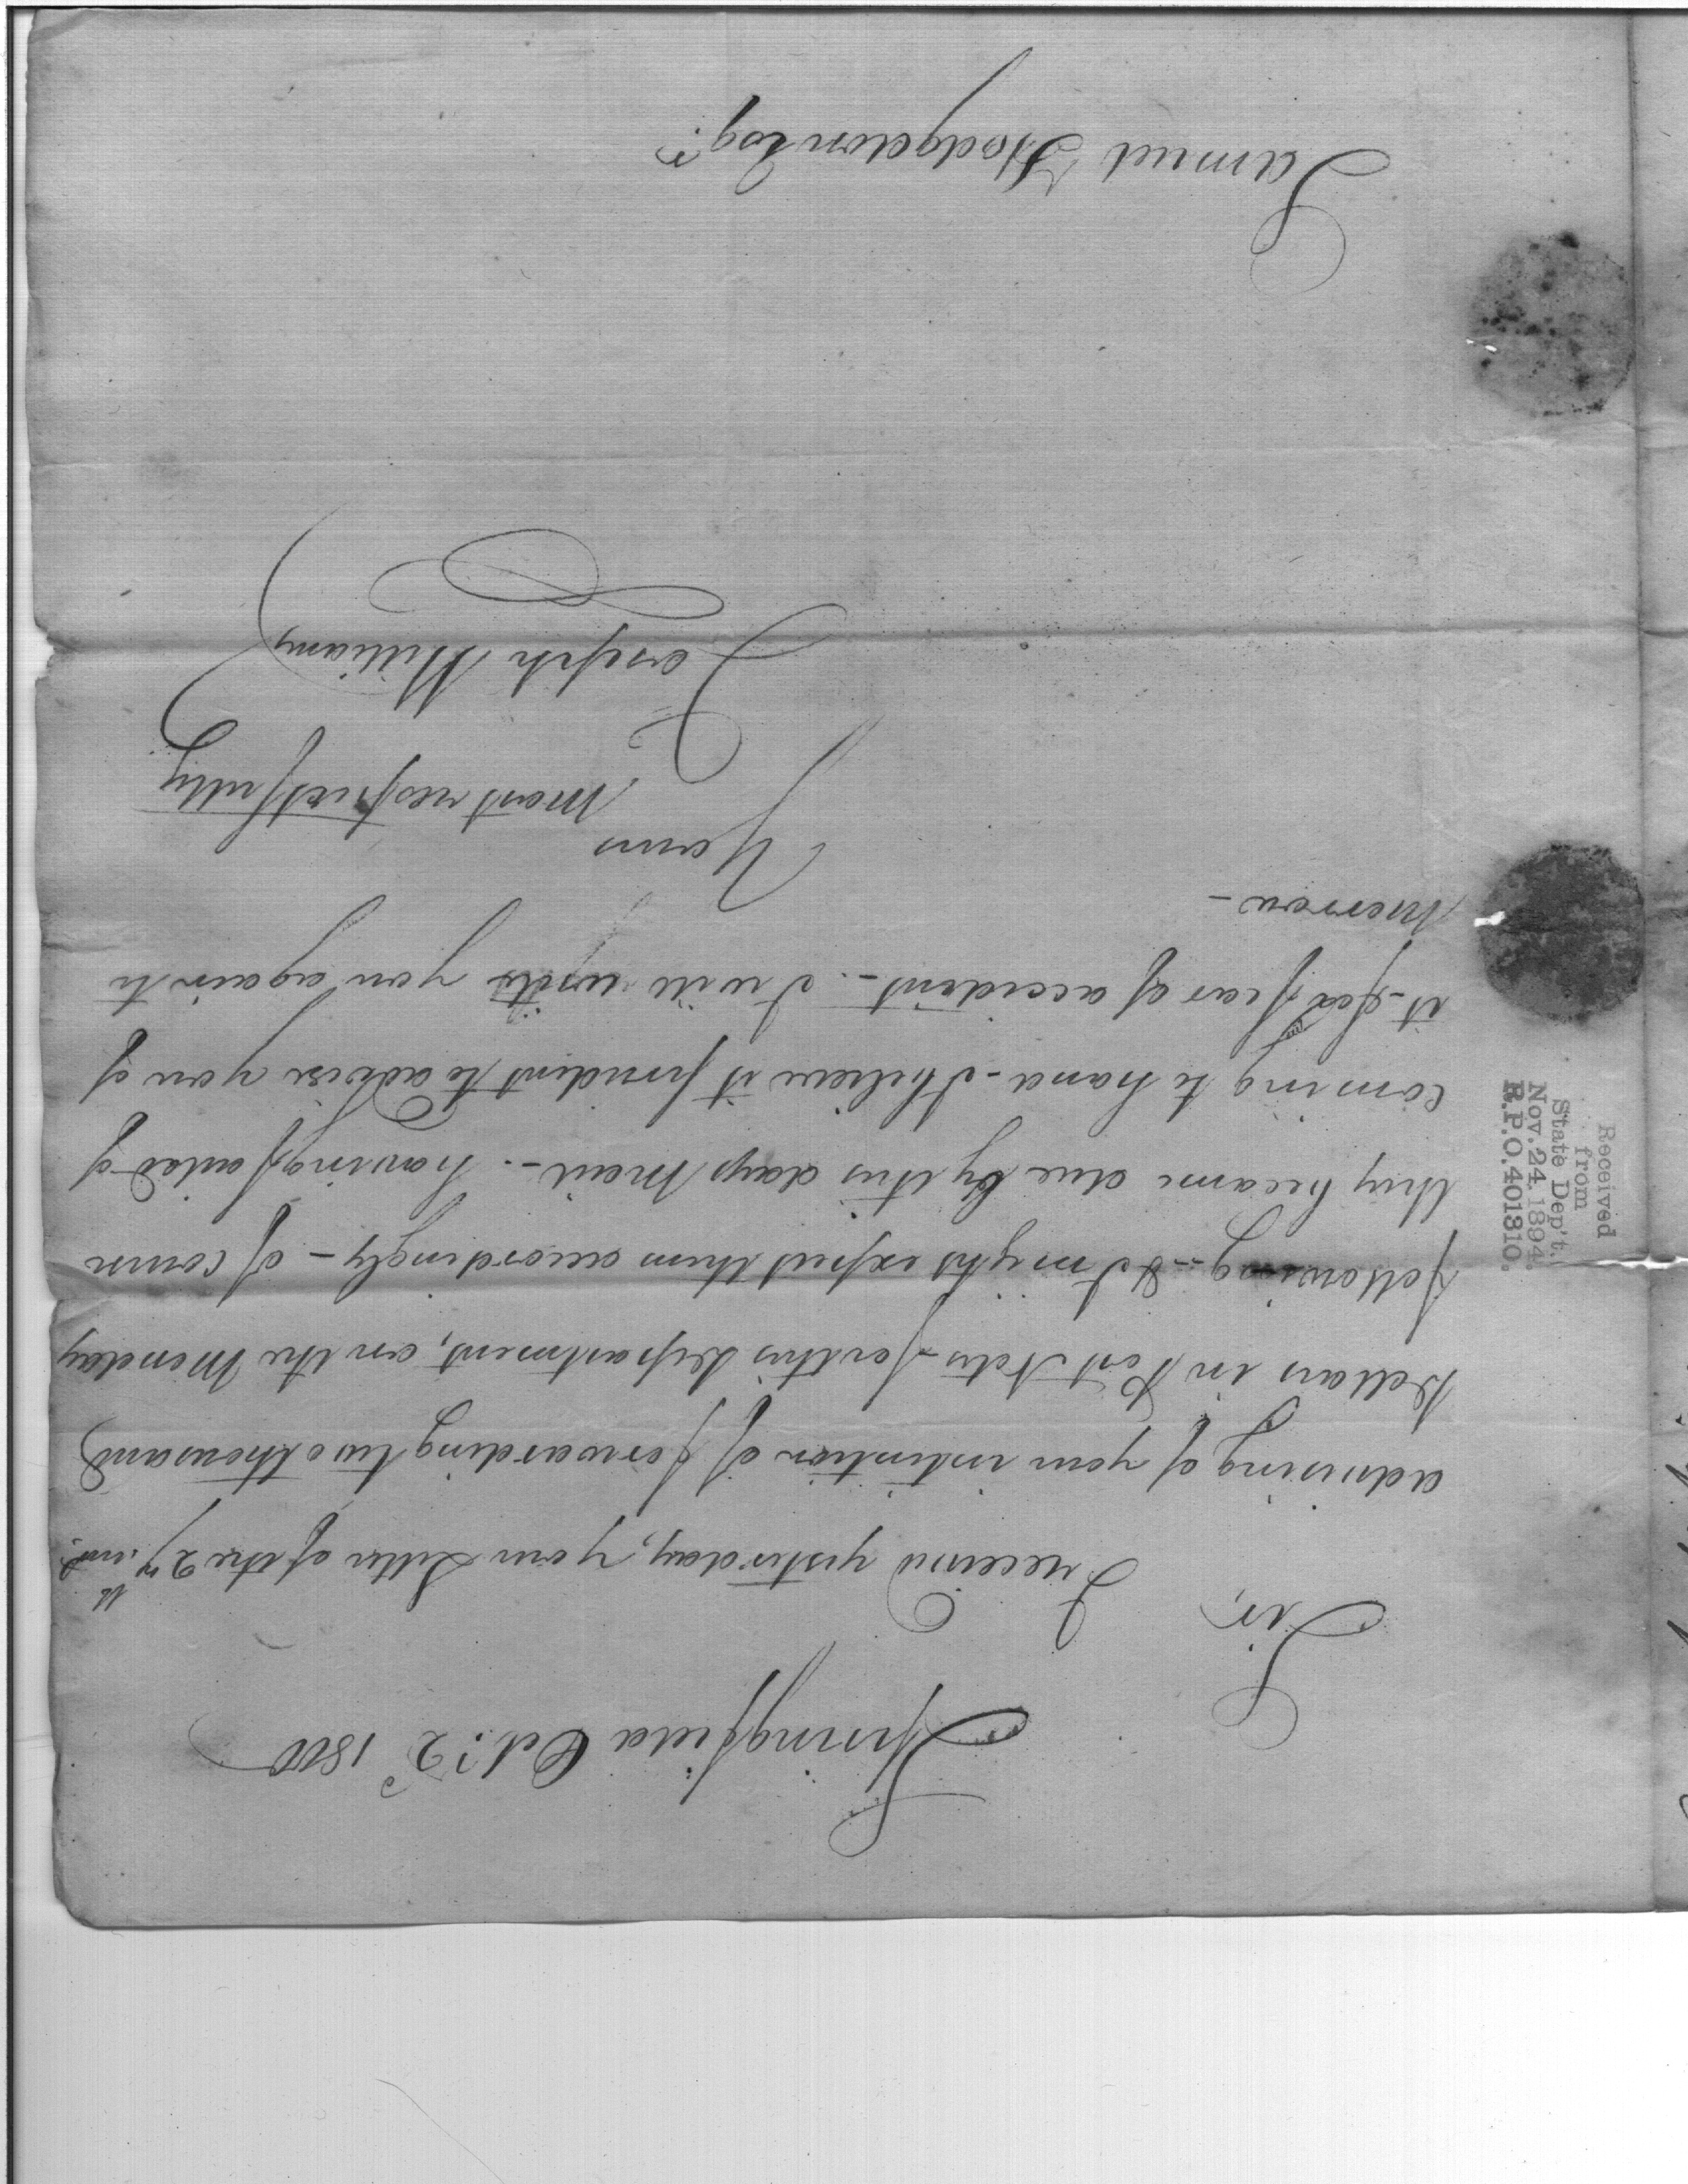 Springfield Oct.: 2d 1800
Sir,
I received yesterday, your Letter of the 27th
advising of your intention of forwarding two thousand
Dollars in Post Notes for this department, on the Monday
following – & I might expect them accordingly – of course
they became due by this days Mail – having failed of
coming to hand – I believe it prudent to advise you of
it – for fear of accident – I will write you again to
Morrow –
Yours
Most respectfully
Joseph Williams
Samuel Hodgdon Esqr.
Received
from
State Dep't.
Nov. 24, 1894.
R.P.O. 401310.